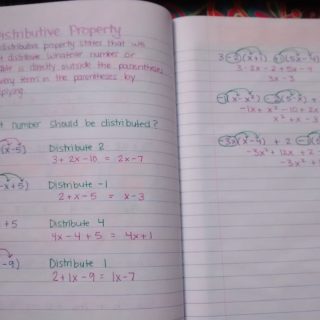 Distributive Property
distributive property states that we
distribute whatever number or
is directly outside the parentheses
every term in the parentheses by
number should be distributed?
(x-5)
Distribute 2
3 + 2x - 10 = 2x - 7
-x+5)
Distribute -1
2 + x - 5 = x - 3
+5
Distribute 4
4x - 4 + 5 = 4x + 1
-9)
Distribute 1
2 + 1x - 9 = 1x - 7
3 -2(x+1) +1(5x-4)
3 - 2x - 2 + 5x - 4
3x - 3
-1(x-x²) -2(5
-1x + x² - 10 + 2x
x² + x -
-3x(x-4) + 2 -1(
-3x² + 12x + 2 -
-3x² +